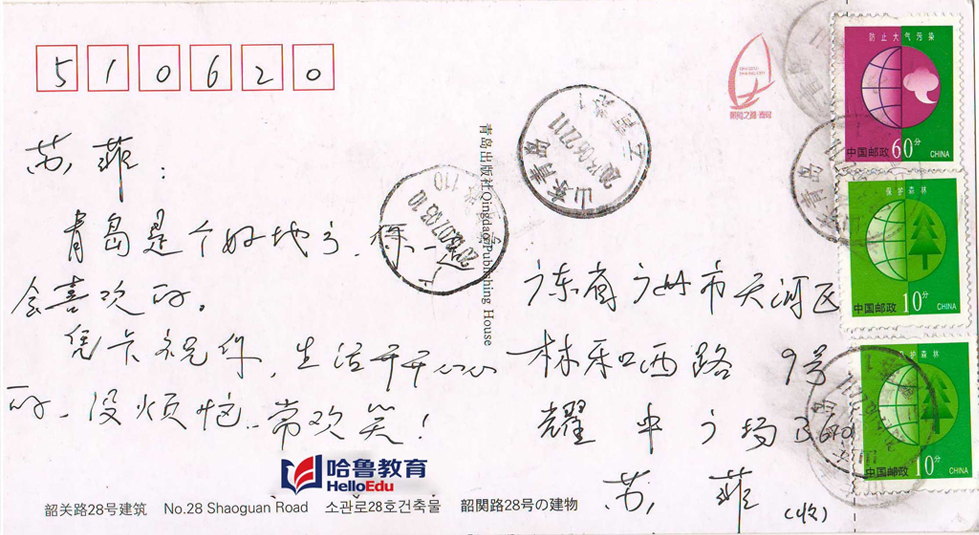 510620
苏菲:
青岛是个好地方,你一定
会喜欢的。
凭卡祝你,生活开开心心
的、没烦恼、常欢笑!
青岛出版社Qingdao Publishing House
广东省广州市天河区
林乐路 9号
耀中广场B
苏菲
(收)
帆船之都·青岛
山东青岛
防止大气污染
中国邮政 60分
CHINA
保护森林
中国邮政 10分
CHINA
保护森林
中国邮政 10分
CHINA
哈鲁教育
HelloEdu
韶关路28号建筑 No.28 Shaoguan Road 소관로28호건축물 韶関路28号の建物